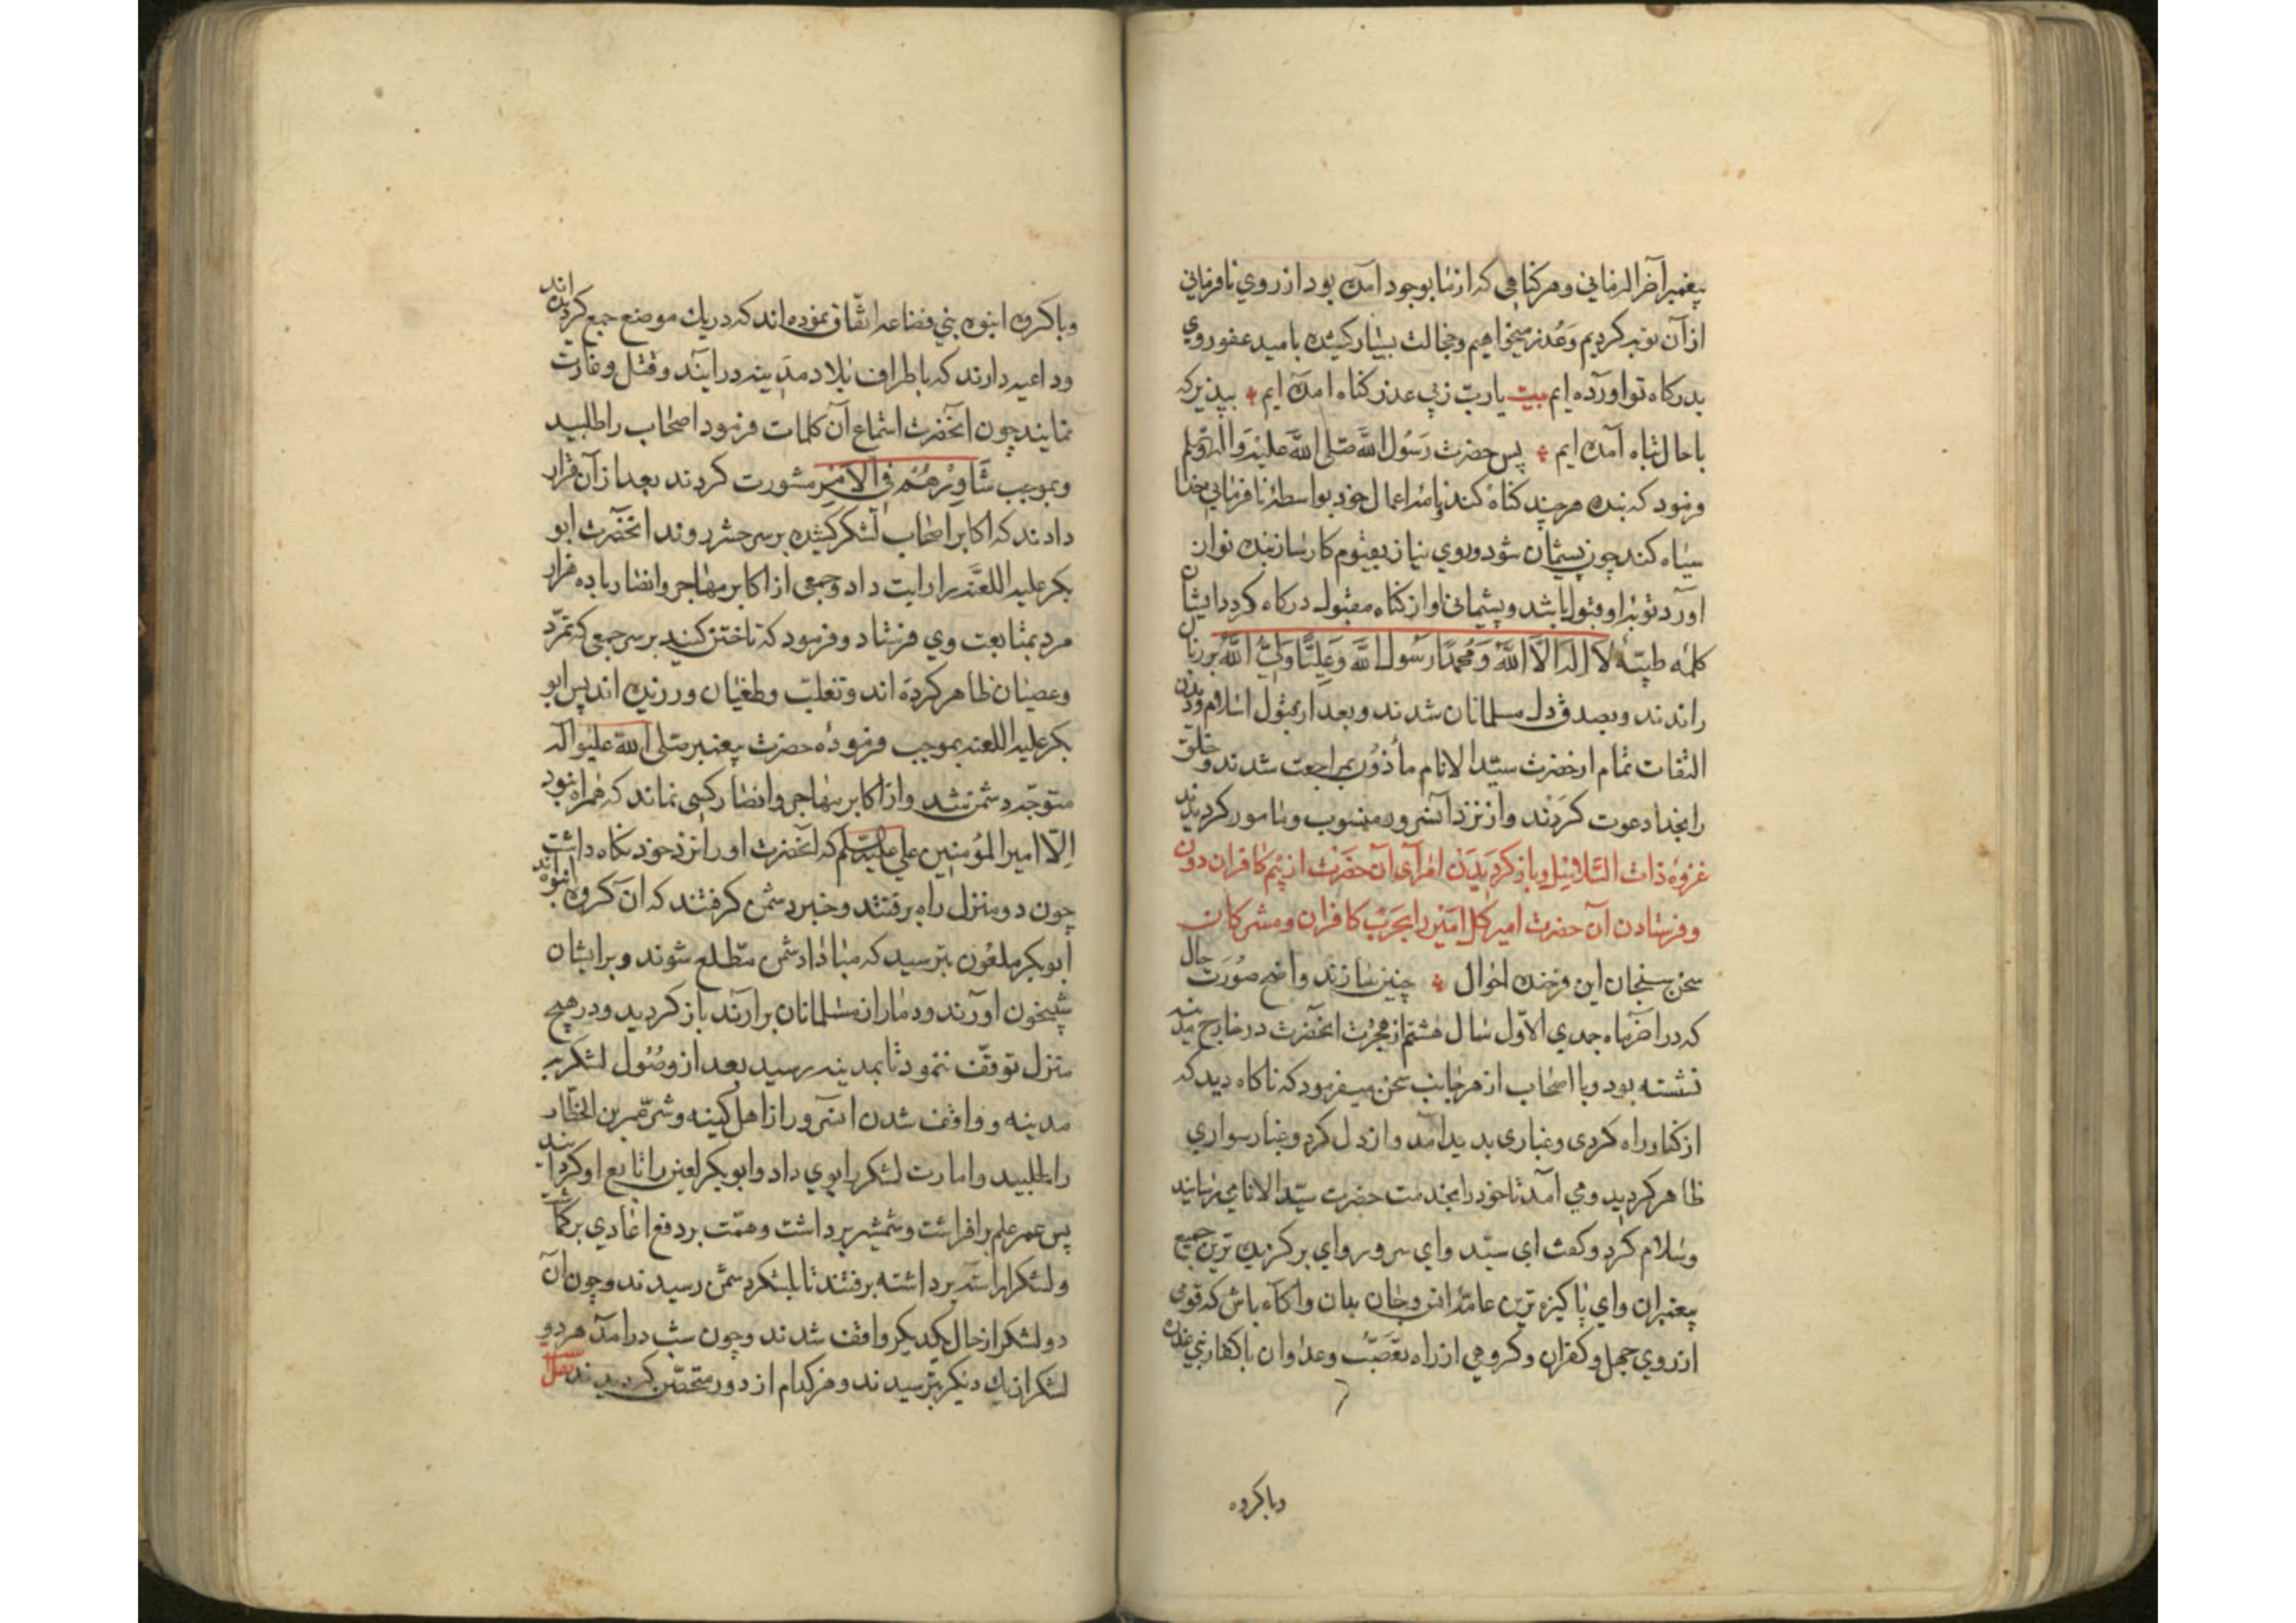 پیغمبر آخر الزمانی و هر کناهی که از ما بوجود آمده بود از روی نافرمانی
از آن توبه کردیم و عذر میخواهیم و خجالت بسیار کشیده بامید عفو روی
بدرکاه تو آورده ایم بیت یا رب ز پی عذر کناه آمده ایم بپذیر که
با حال تباه آمده ایم پس حضرت رسول الله صلی الله علیه و آله وسلم
فرمود که بنده هر چند کناه کند و نامهٔ اعمال خود بواسطهٔ نافرمانی خدا
سیاه کند چون پشیمان شود و روی نیاز بقیوم کارسازبنده نواز
آورد توبهٔ او قبول باشد و پشیمانی او از کناه مقبول درکاه کردد ایشان
کلمه طیبهٔ لا اله الا الله و محمدا رسول الله و علیا ولی الله بر زبان
راندند و بصدق دل مسلمانان شدند و بعد از قبول اسلام و دیدن
التفات تمام از حضرت سید الانام مأذون بمراجعت شدند و خلق
را بخدا دعوت کردند و از نزد آنسرور منسوب و مامور کردیدند
غزوه ذات السلاسل و باز کردیدن امرآی آن حضرت از بیم کافران دون
و فرستادن آن حضرت امیر کل امیر را بحرب کافران و مشرکان
سخن سنجان این فرخنده احوال چنین سازند واضح صورت حال
که در آخر ماه جمدی الاول سال هشتم از هجرت آنحضرت در خارج مدینه
نشسته بود و با اصحاب از هر جانب سخن میفرمود که ناکاه دید که
از کنار راه کردی و غباری بدید آمد و از دل کرد و غبار سواری
ظاهر کردید و می آمد تا خود را بخدمت حضرت سید الانام میرسانید
و سلام کرد و کفت ای سید و ای سرور و ای برکزیده ترین جمیع
پیغمبران و ای پاکیزه ترین عامهٔ انس و جان بدان و آکاه باش که قومی
از روی جهل و کفران و کروهی از راه تعصب و عدوان با کفار بنی
وبا کروه
وبا کروه انبوه بنی قضاعه اتفاق نموده اند که در یک موضع جمع کردیده اند
و داعیه دارند که با طراف بلاد مدینه در آیند و قتل و غارت
نمایند چون آنحضرت استماع آن کلمات فرمود اصحاب را طلبید
و بموجب شاورهم فی الامر مشورت کردند بعد از آن قرار
دادند که اکابر اصحاب لشکر کشیده بر سر حشر روند آنحضرت ابو
بکر علیه اللعنه را رایت داد و جمعی از اکابر مهاجر و انصار با ده هزار
مرد بمتابعت وی فرستاد و فرمود که تاختن کنید بر سر جمعی که تمرد
و عصیان ظاهر کرده اند و تغلب و طغیان ورزیده اند پس ابو
بکر علیه اللعنه بموجب فرموده حضرت پیغمبر صلی الله علیه و آله
متوجه دشمن شد و از اکابر مهاجر و انصار کسی نماند که همراه نبود
الا امیر المؤمنین علی علیه السلم که آنحضرت او را نزد خود نکاه داشت
چون دو منزل راه برفتند و خبر دشمن کرفتند که آن کروه انبوه اند
ابو بکر ملعون بترسید که مبادا دشمن مطلع شوند و بر ایشان
شبیخون آورند و دمار از مسلمانان برآرند باز کردید و در هیچ
منزل توقف ننمود تا بمدینه رسید بعد از وصول لشکر به
مدینه و واقف شدن آنسرور از اهل کینه و شر عمر بن الخطاب
را طلبید و امارت لشکر را بوی داد و ابو بکر لعین را تابع او کردانید
پس عمر علم بر افراشت و شمشیر برداشت و همت بر دفع اعادی برکماشت
و لشکر آراسته برداشته برفتند تا بلشکر دشمن رسیدند و چون آن
دو لشکر از حال یکدیکر واقف شدند و چون شب در آمد هر دو
لشکر از یک دیکر بترسیدند و هر کدام از دور متحصن کردیدند